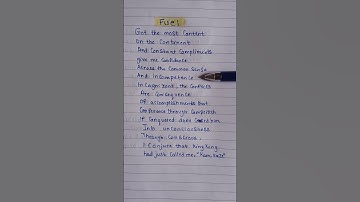 Fuel
Got the most Content
On the Continent
And Constant Compliments
give me Confidence
Across the Common Sense
And incompetence
In Cognizent, the Conflicts
Are Consequence
OF accomplishments but
Conference through
IF Conquered does
Into unconsciousness
Through Conscience.
I Conjust that King Kong
had just called me, "Kamikaze"